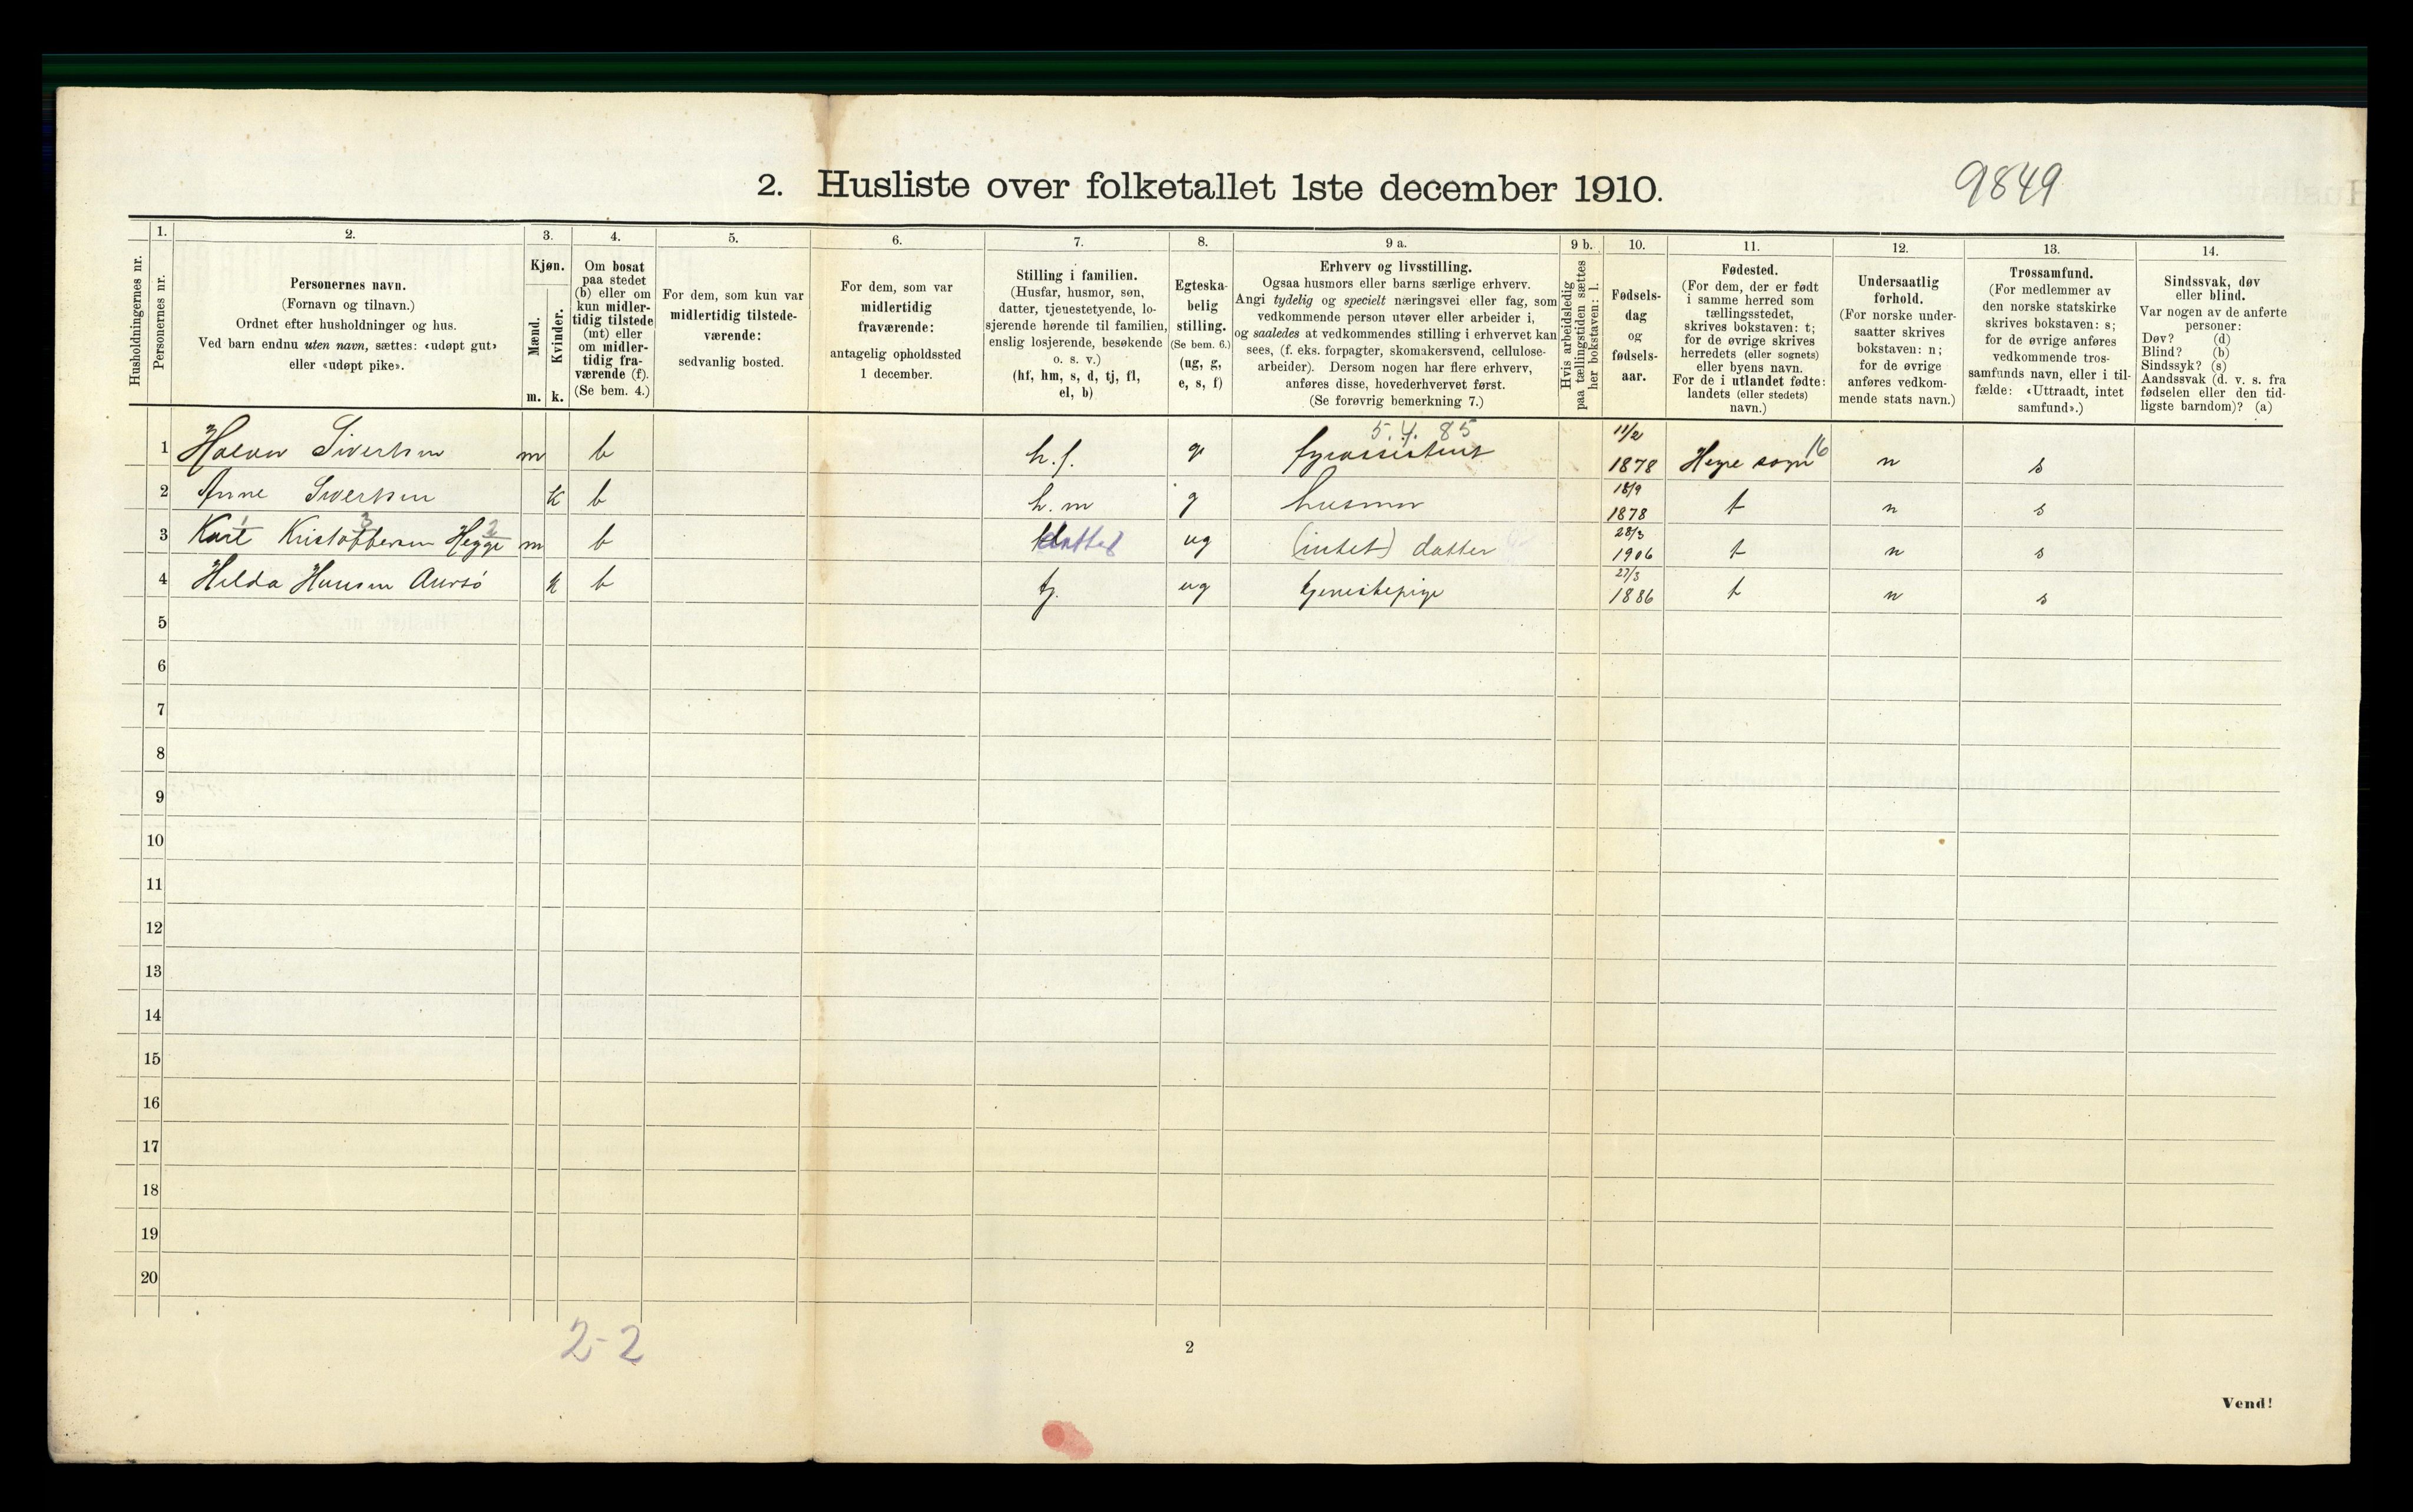 2. Husliste over folketallet 1ste december 1910.
9849
Husholdningernes nr.
1.
Personernes nr.
2.
Personernes navn.
(Fornavn og tilnavn.)
Ordnet efter husholdninger og hus.
Ved barn endnu uten navn, sættes: «udøpt gut»
eller «udøpt pike».
3.
Kjøn.
Mænd.
Kvinder.
m. k.
4.
Om bosat
paa stedet
(b) eller om
kun midler-
tidig tilstede
(mt) eller
om midler-
tidig fra-
værende (f).
(Se bem. 4.)
5.
For dem, som kun var
midlertidig tilstede-
værende:
sedvanlig bosted.
6.
For dem, som var
midlertidig
fraværende:
antagelig opholdssted
1 december.
7.
Stilling i familien.
(Husfar, husmor, søn,
datter, tjenestetyende, lo-
sjerende hørende til familien,
enslig losjerende, besøkende
o. s. v.)
(hf, hm, s, d, tj, fl,
el, b)
8.
Egteska-
belig
stilling.
(Se bem. 6.)
(ug, g,
e, s, f)
9 a.
Erhverv og livsstilling.
Ogsaa husmors eller barns særlige erhverv.
Angi tydelig og specielt næringsvei eller fag, som
vedkommende person utøver eller arbeider i,
og saaledes at vedkommendes stilling i erhvervet kan
sees, (f. eks. forpagter, skomakersvend, cellulose-
arbeider). Dersom nogen har flere erhverv,
anføres disse, hovederhvervet først.
(Se forøvrig bemerkning 7.)
9 b.
Hvis arbeidsledig
paa tællingstiden sættes
her bokstaven: l.
10.
Fødsels-
dag
og
fødsels-
aar.
11.
Fødested.
(For dem, der er født
i samme herred som
tællingsstedet,
skrives bokstaven: t;
for de øvrige skrives
herredets (eller sognets)
eller byens navn.
For de i utlandet fødte:
landets (eller stedets)
navn.)
12.
Undersaatlig
forhold.
(For norske under-
saatter skrives
bokstaven: n;
for de øvrige
anføres vedkom-
mende stats navn.)
13.
Trossamfund.
(For medlemmer av
den norske statskirke
skrives bokstaven: s;
for de øvrige anføres
vedkommende tros-
samfunds navn, eller i til-
fælde: «Uttraadt, intet
samfund».)
14.
Sindssvak, døv
eller blind.
Var nogen av de anførte
personer:
Døv? (d)
Blind? (b)
Sindssyk? (s)
Aandssvak (d. v. s. fra
fødselen eller den tid-
ligste barndom)? (a)
5. 4. 85
1 Halvor Sivertsen m b h.f. g fyrassistent 11/2 1878 Hegre sogn 16 n s
2 Anne Sivertsen k b h.m g husmor 18/9 1878 t n s
1 3 2
3 Karl Kristoffersen Hegge m b datter ug (intet) datter 28/3 1906 t n s
4 Hilda Hansen Aursø k b tj. ug tjenestepige 27/3 1886 t n s
5
6
7
8
9
10
11
12
13
14
15
16
17
18
19
20
2-2
2
Vend!